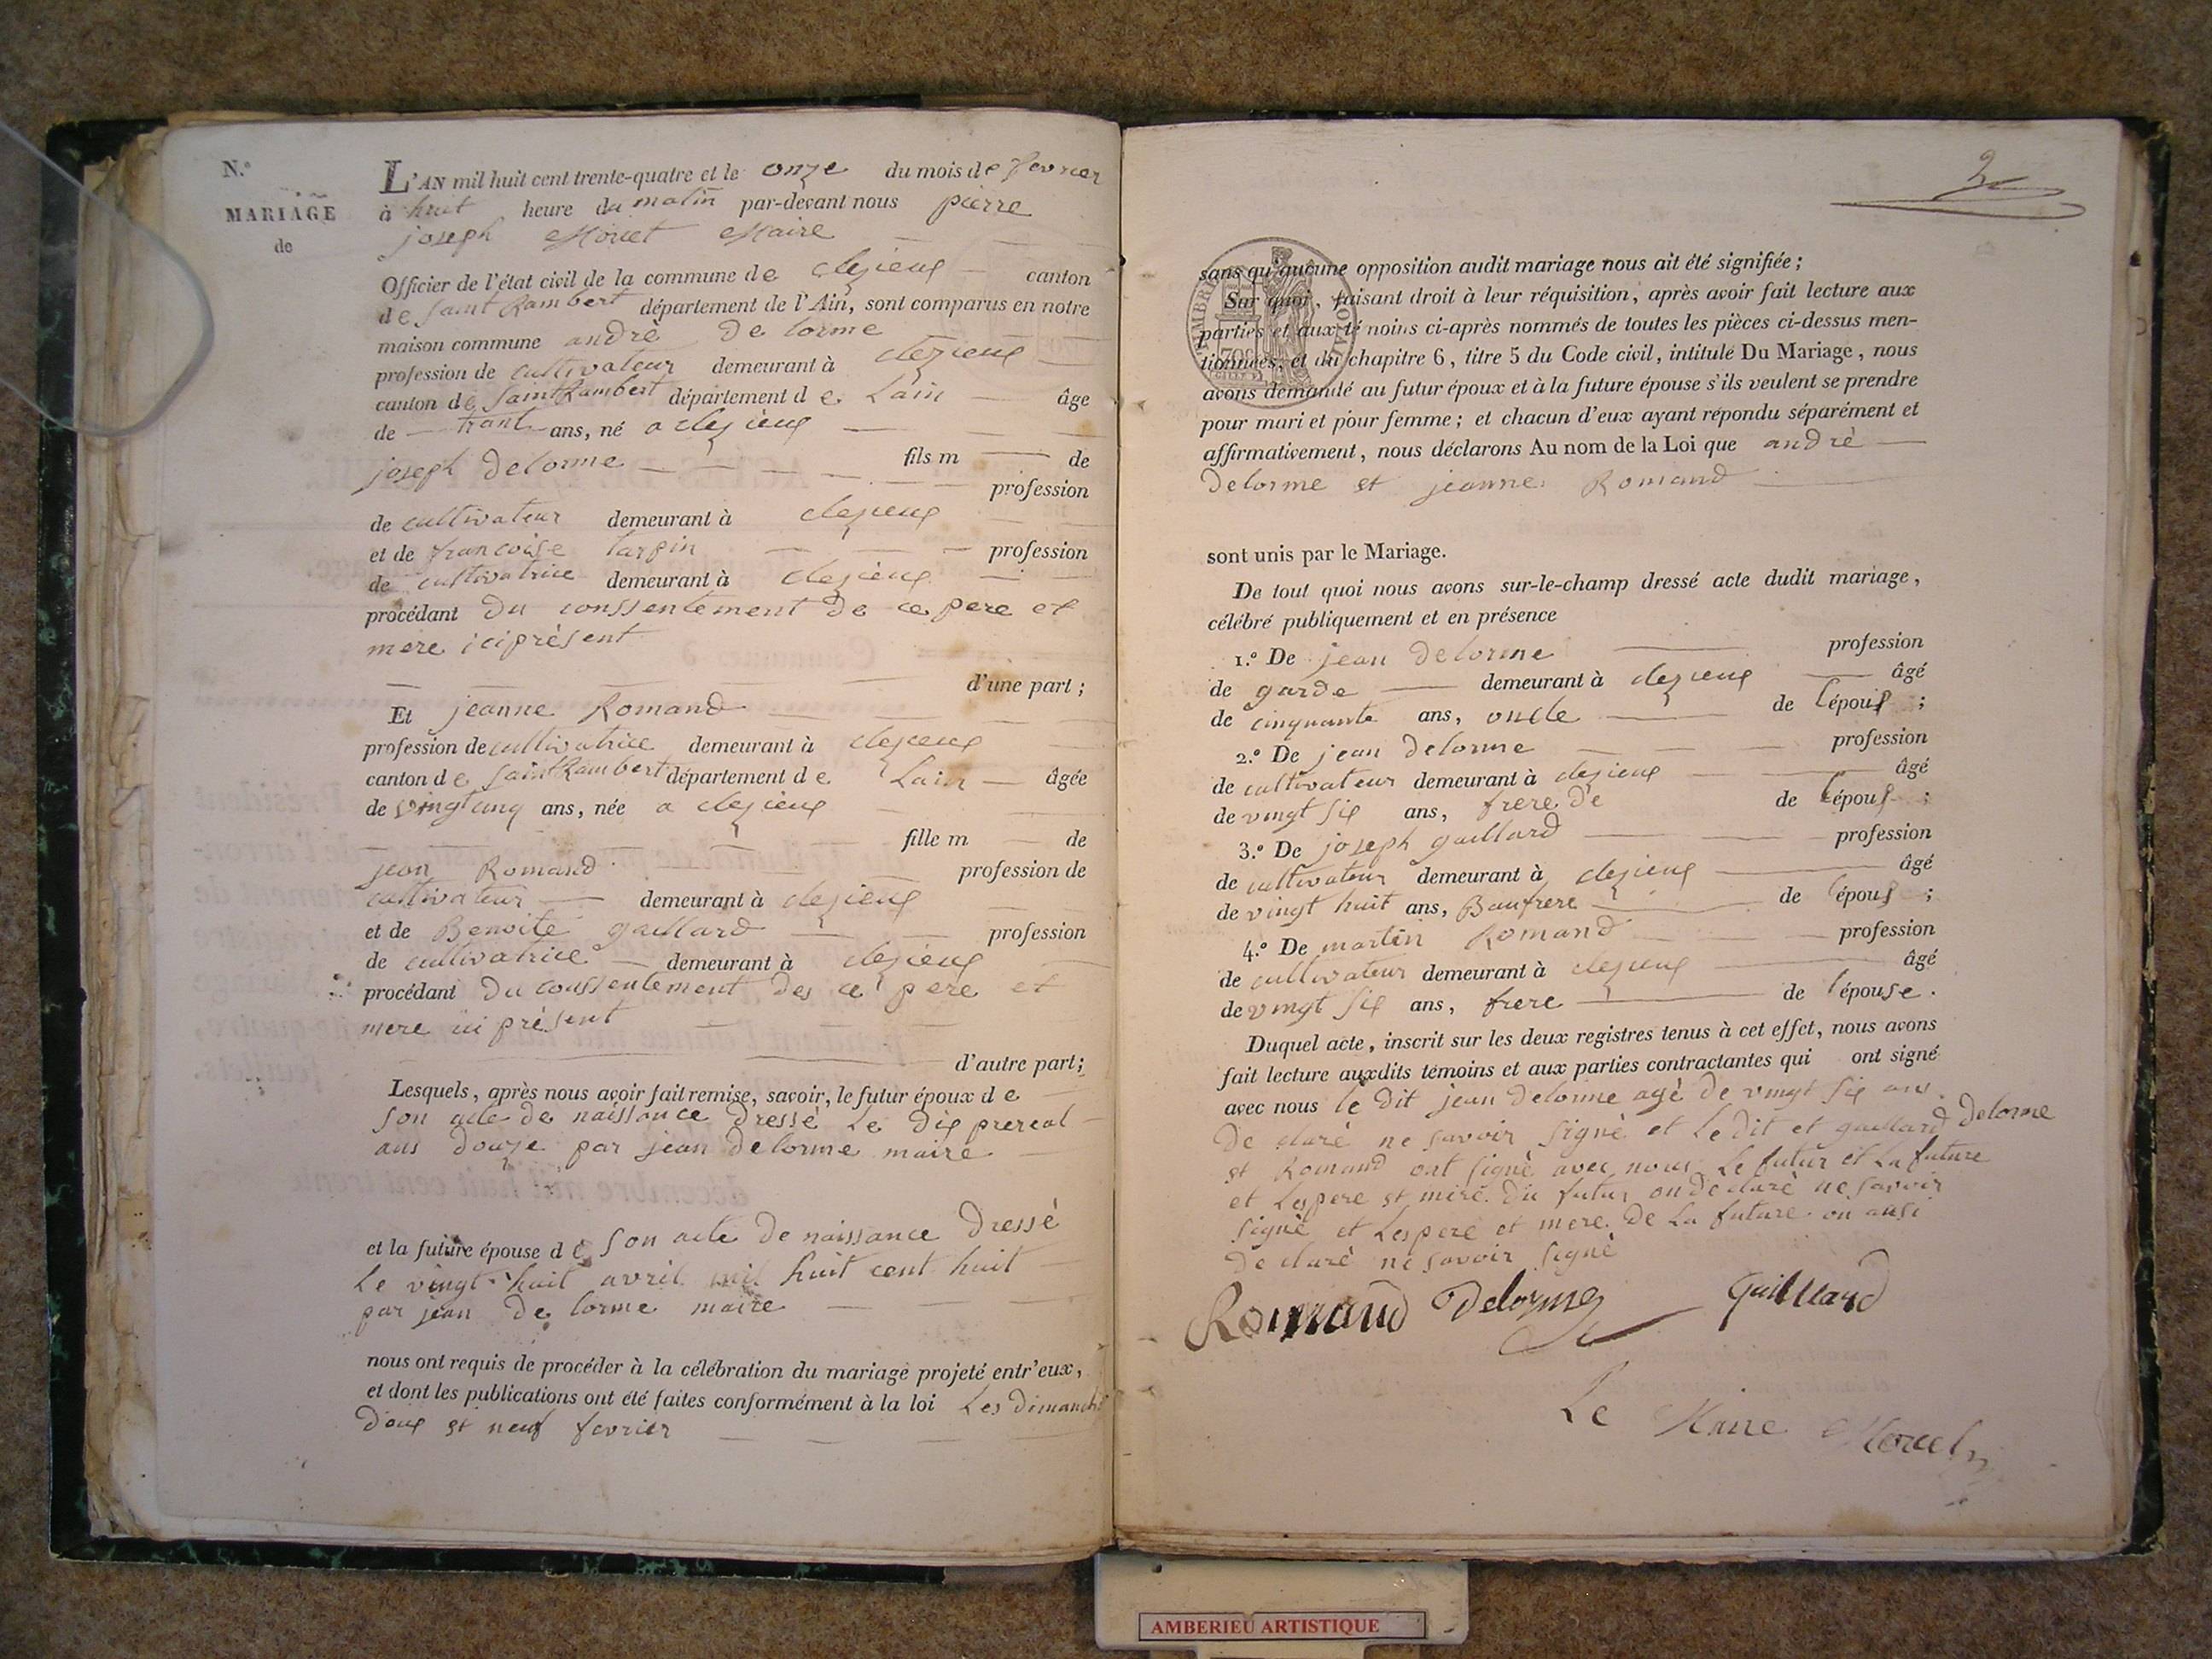 N.º
MARIAGE
de
L'AN mil huit cent trente-quatre et le onze du mois de fevrier
à huit heure du matin par-devant nous pierre
joseph Morcet Maire
Officier de l'état civil de la commune de clezieux canton
de Saint Rambert département de l'Ain, sont comparus en notre
maison commune andrè De lorme
profession de cultivateur demeurant à clezieux
canton de Saint Rambert département de Lain âge
de trant ans, né a clezieux
joseph Delorme fils m de
profession
de cultivateur demeurant à clezieux
et de francoise tarpin profession
de cultivatrice demeurant à clezieux
procédant Du conssentement De ce pere et
mere ici prèsent
d'une part ;
Et jeanne Romand
profession de cultivatrice demeurant à clezieux
canton de Saint Rambert département de Lain âgée
de vingt cinq ans, née a clezieux
fille m de
jean Romand profession de
cultivateur demeurant à clezieux
et de Benoite gaillard profession
de cultivatrice demeurant à clezieux
procédant Du conssentement Des ce pere et
mere ici prèsent
d'autre part;
Lesquels, après nous avoir fait remise, savoir, le futur époux de
son acte de naissance Dressé Le Dix prereal
ans Douze par jean Delorme maire
et la future épouse de son acte De naissance Dressé
Le vingt huit avril mil huit cent huit
par jean De lorme maire
nous ont requis de procéder à la célébration du mariage projeté entr'eux,
et dont les publications ont été faites conformément à la loi Les Dimanche
Doux et neuf fevrier
2
TIMBRE ROYAL
70c
sans qu'aucune opposition audit mariage nous ait été signifiée ;
Sur quoi, faisant droit à leur réquisition, après avoir fait lecture aux
parties et aux témoins ci-après nommés de toutes les pièces ci-dessus men-
tionnées, et du chapitre 6, titre 5 du Code civil, intitulé Du Mariage, nous
avons demandé au futur époux et à la future épouse s'ils veulent se prendre
pour mari et pour femme ; et chacun d'eux ayant répondu séparément et
affirmativement, nous déclarons Au nom de la Loi que andrè
Delorme et jeanne Romand
sont unis par le Mariage.
De tout quoi nous avons sur-le-champ dressé acte dudit mariage,
célébré publiquement et en présence
1.º De jean Delorme profession
de garde demeurant à clezieux âgé
de cinquante ans, oncle de l'époux ;
2.º De jean Delorme profession
de cultivateur demeurant à clezieux âgé
de vingt six ans, frere De de l'époux ;
3.º De joseph gaillard profession
de cultivateur demeurant à clezieux âgé
de vingt huit ans, Baufrere de l'époux ;
4.º De martin Romand profession
de cultivateur demeurant à clezieux âgé
de vingt six ans, frere de l'épouse.
Duquel acte, inscrit sur les deux registres tenus à cet effet, nous avons
fait lecture auxdits témoins et aux parties contractantes qui ont signé
avec nous le Dit jean Delorme agè De vingt six ans
De clarè ne savoir signè et Le dit et gaillard Delorme
et Romand ont signè avec nous Le futur et La future
et Les pere et mere Du futur on De clarè ne savoir
signè et Les pere et mere De La future on ausi
De clarè ne savoir signè
Romand Delorme Gaillard
Le Maire Morcel
AMBERIEU ARTISTIQUE